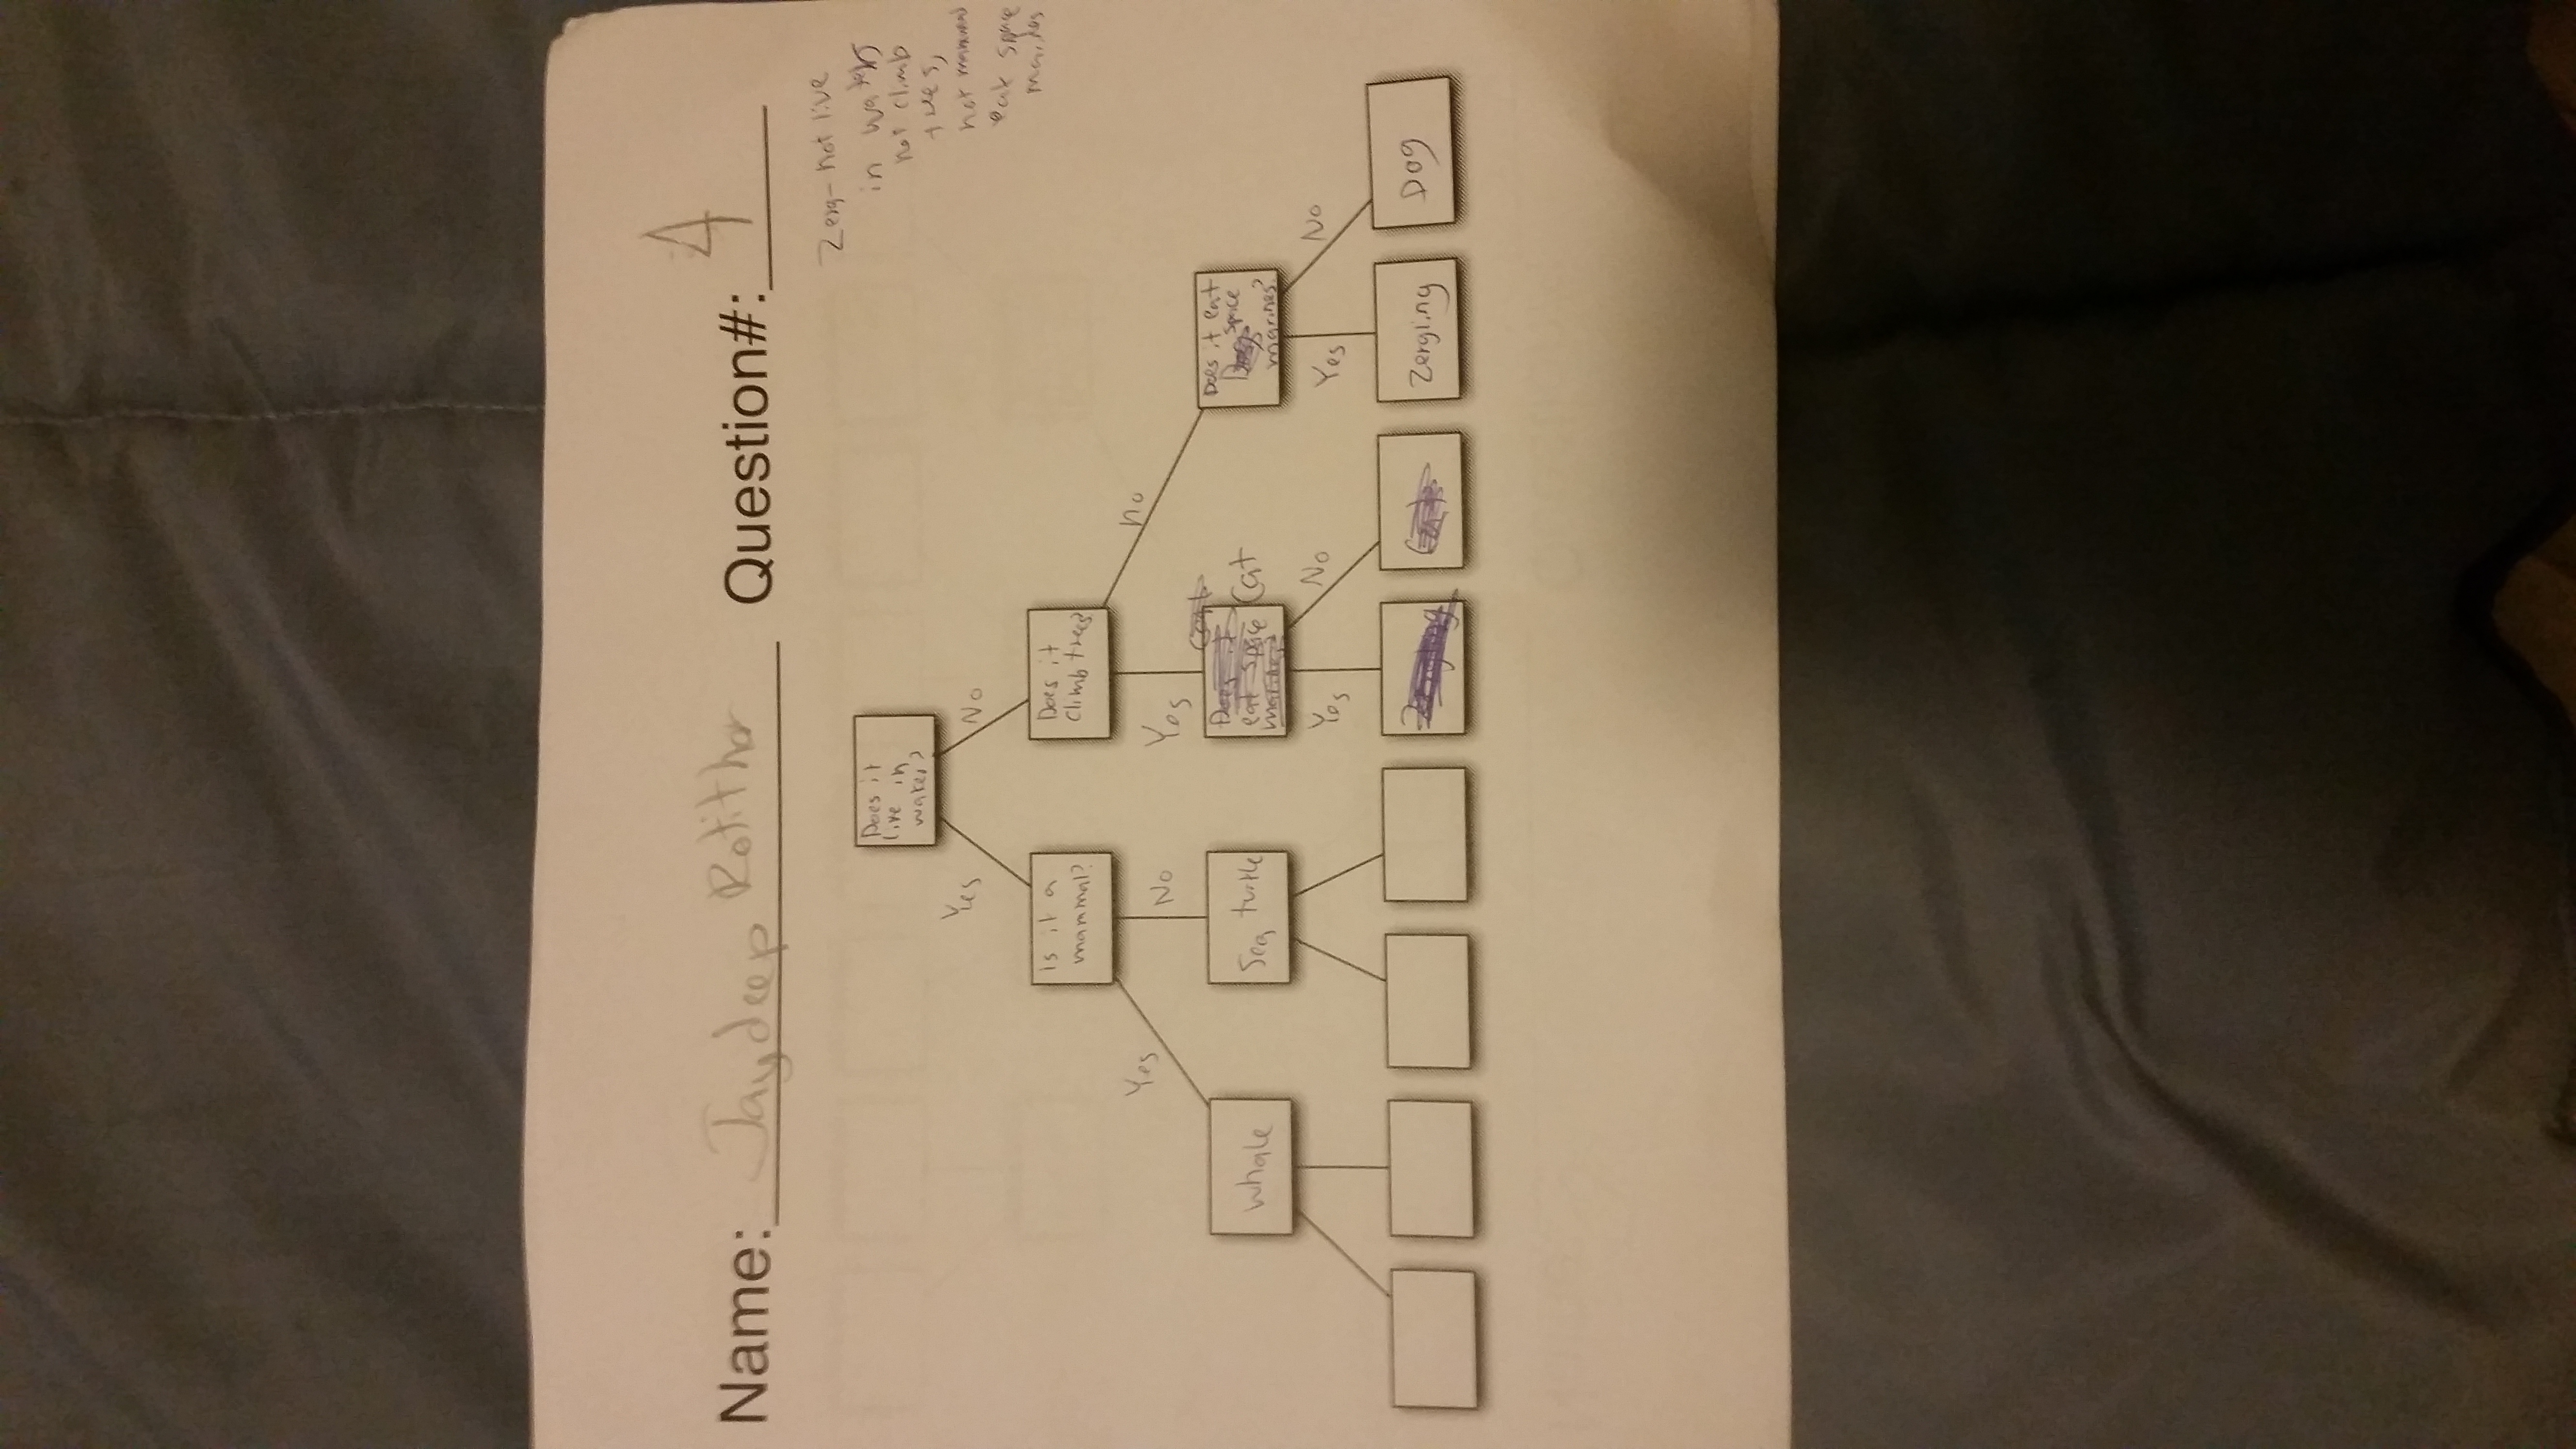 Name: Jaydeep Rotithor Question#: 4
Zerg- not live
in water,
not climb
trees,
not mammal
eat space
marines
Does it
live in
water?
Yes
No
Is it a
mammal?
Does it
climb trees?
Yes
No
Yes
no
Whale
Sea turtle
Does it
eat space
marines?
Cat
Cat
Does it eat
Dog space
marines?
Yes
No
Yes
No
Zergling
Cat
Zergling
Dog